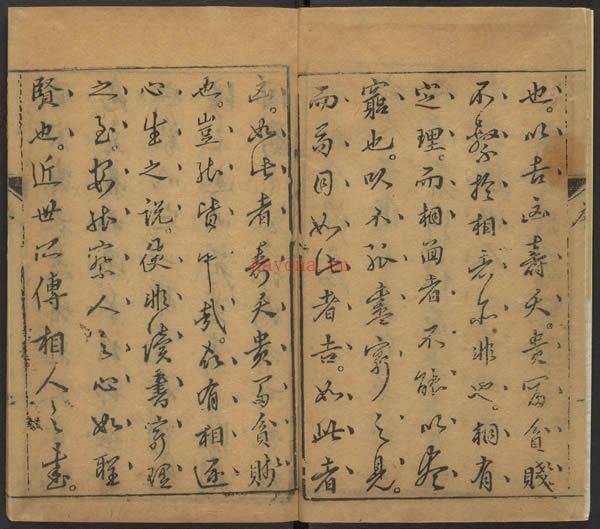 也。以吉凶壽夭。貴富貧賤
不繫於相亦非也。相有
定理。而相面者不能以盡
窮也。以不盡窮之見
而目如此者吉。如此者
凶。如此者壽夭貴富貧賤
也。豈能皆中哉。故有相逐
心生之說。使非讀書窮理
之至。安能察人之心如聖
賢也。近世所傳相人之書。
nayona.cn